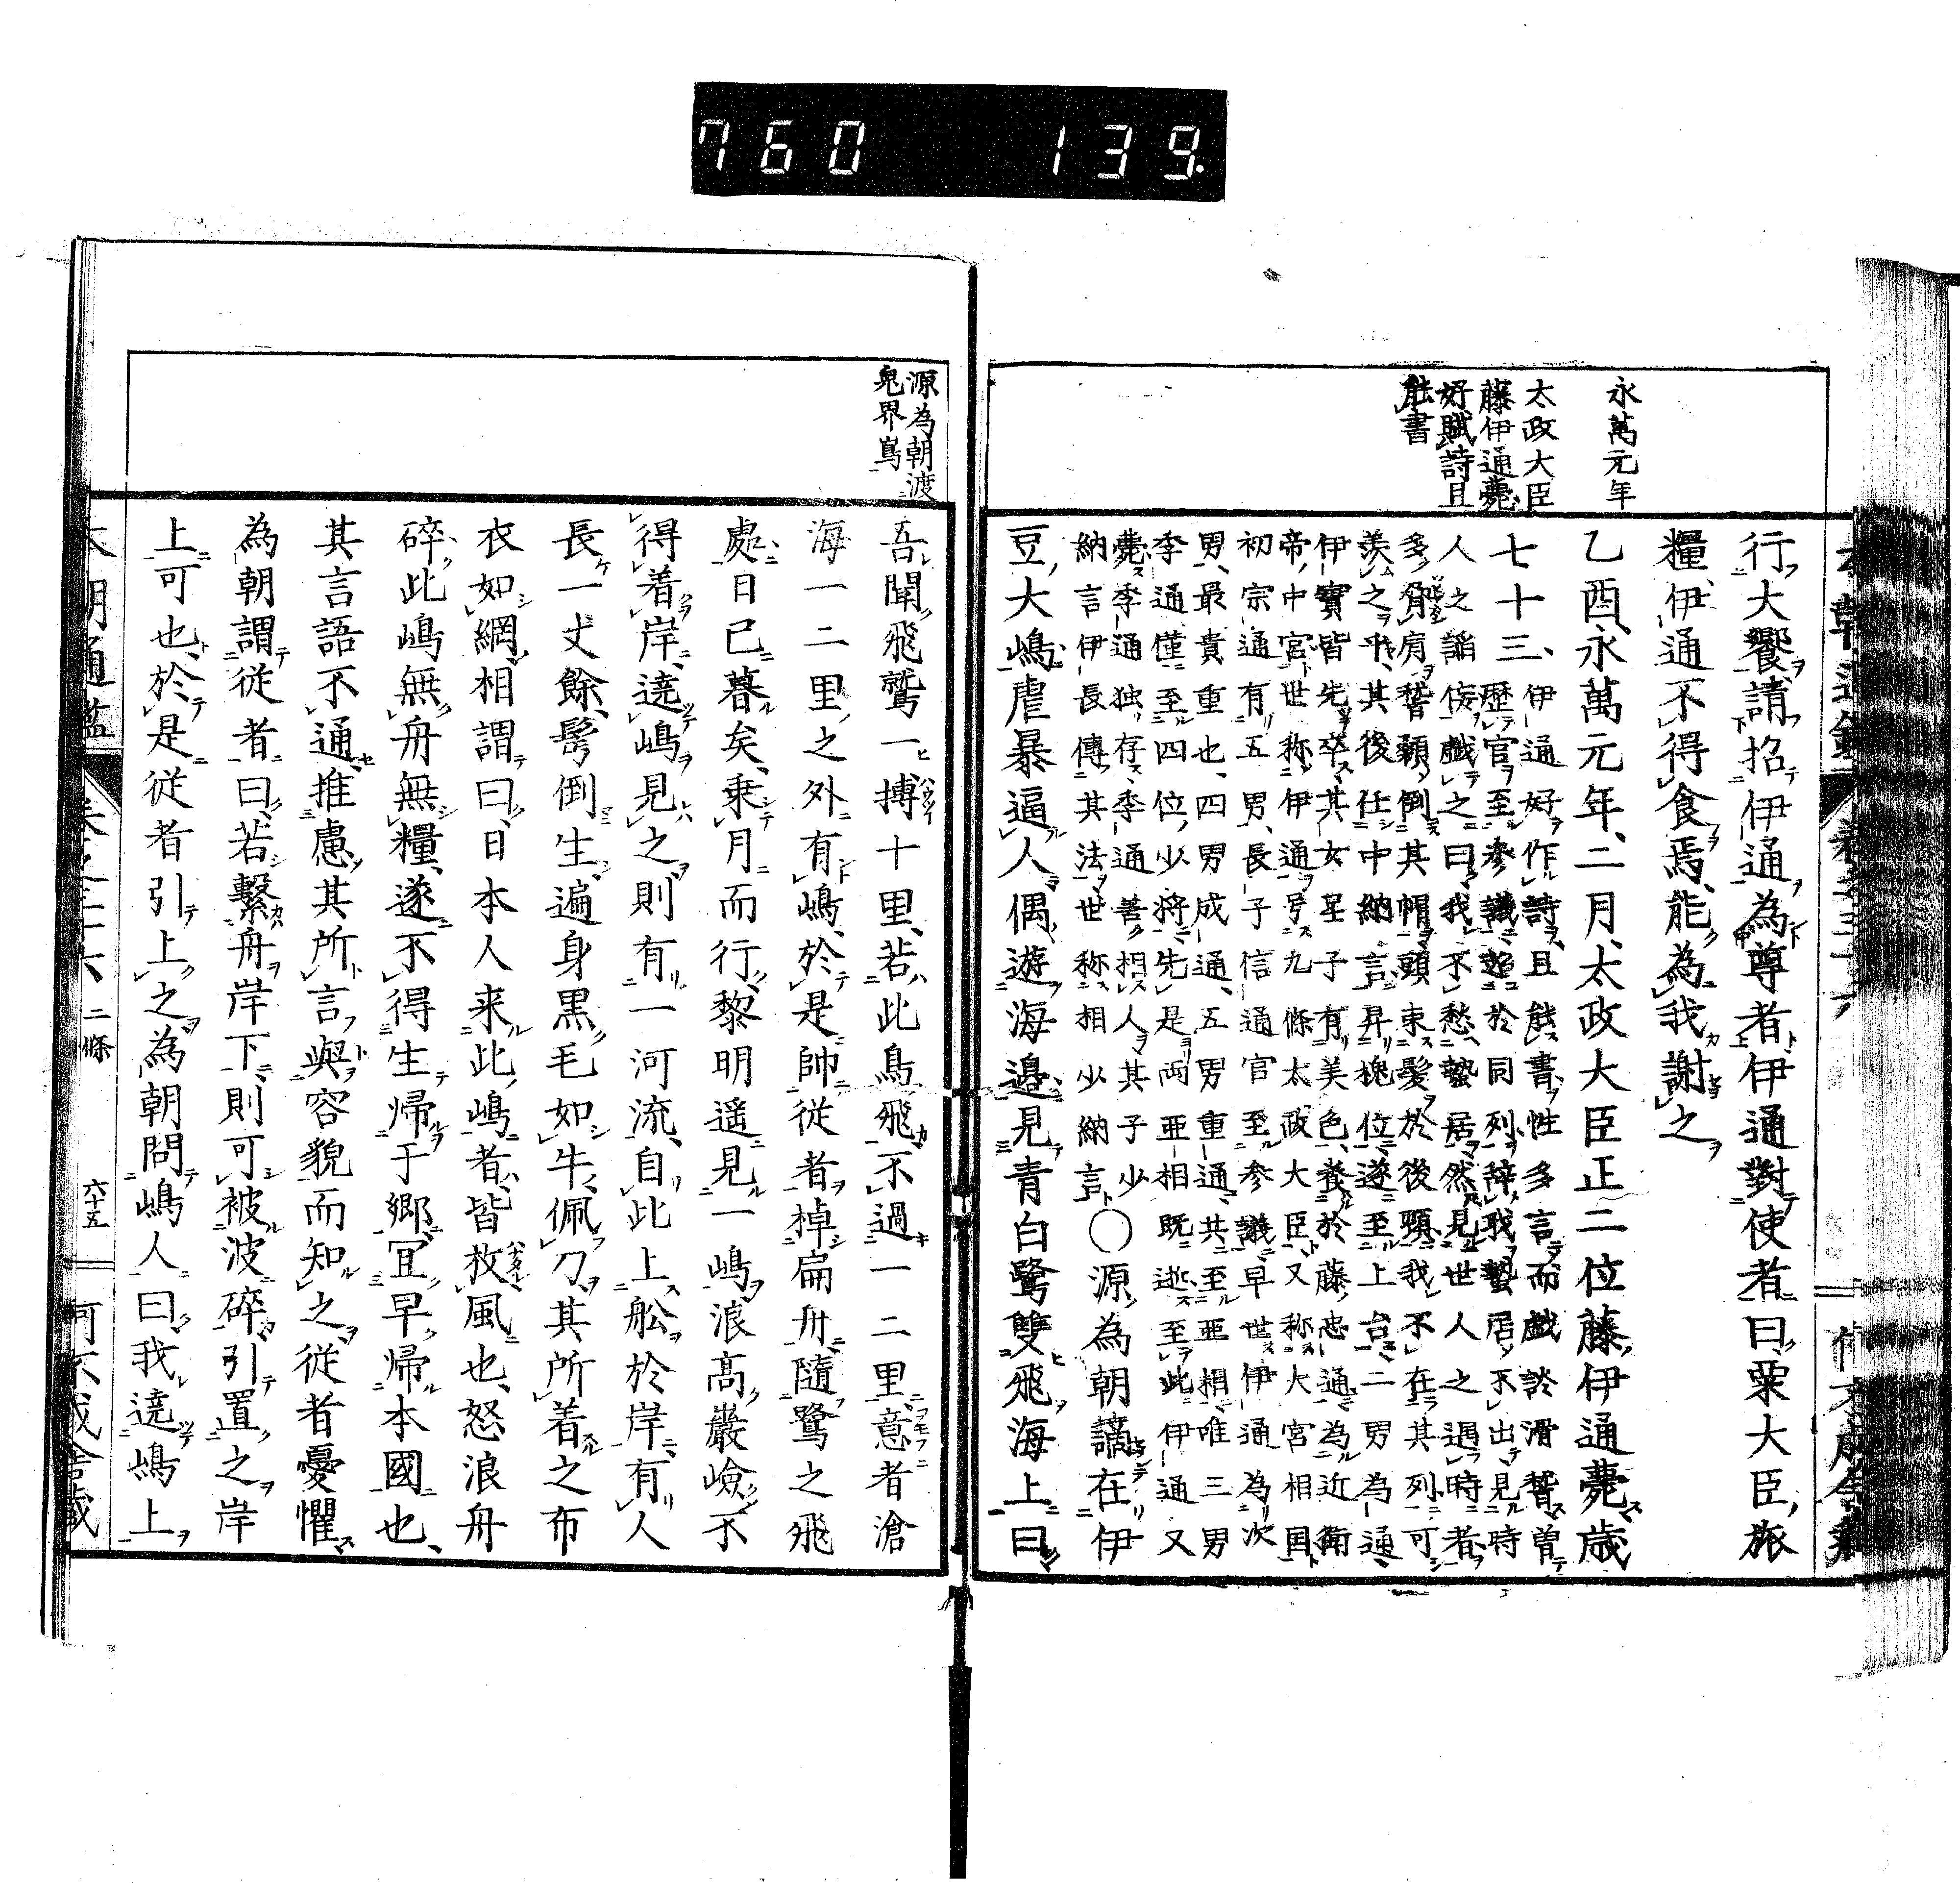 760 139
永萬元年
太政大臣
藤伊通薨
好賦詩且
能書
行大饗請招伊通為尊者伊通對使者曰粟大臣旅
糧伊通不得食焉能為我謝之
乙酉永萬元年二月太政大臣正二位藤伊通薨歳
七十三
伊通好作詩且能書性多言而戯談滑稽曽
歴官至参議超於同列辞職蟄居不出見時
人之諂侫戯之曰我不愁蟄居然見世人之遇時者
多脅肩稽顙倒其帽頭束髪於後頸我不在其列可
羨之乎其後任中納言昇槐位遂至上台二男為通
伊實皆先卒其女呈子有美色養於藤忠通為近衛
帝中宮世称伊通号九條太政大臣又称大宮相国
初宗通有五男長子信通官至参議早世伊通為次
男最貴重也四男成通五男重通共至亜相唯三男
季通僅至四位少将先是両亜相既逝至此伊通又
薨季通独存季通善相人其子少
納言伊長傳其法世称相少納言
〇源為朝謫在伊
豆大嶋虐暴逼人偶遊海邉見青白鷺雙飛海上曰
源為朝渡
鬼界嶌
吾聞飛鷲一搏十里若此鳥飛不過一二里意者滄
海一二里之外有嶋於是帥従者棹扁舟隨鷺之飛
處日已暮矣乗月而行黎明遥見一嶋浪髙巖嶮不
得着岸遶嶋見之則有一河流自此上舩於岸有人
長一丈餘髩倒生遍身黒毛如牛佩刀其所着之布
衣如網相謂曰日本人来此嶋者皆放風也怒浪舟
碎此嶋無舟無糧遂不得生帰于郷冝早帰本國也
其言語不通推慮其所言與容貌而知之従者憂懼
為朝謂従者曰若繋舟岸下則可被波碎引置之岸
上可也於是従者引上之為朝問嶋人曰我遶嶋上
本朝通鑑
二條
六十五